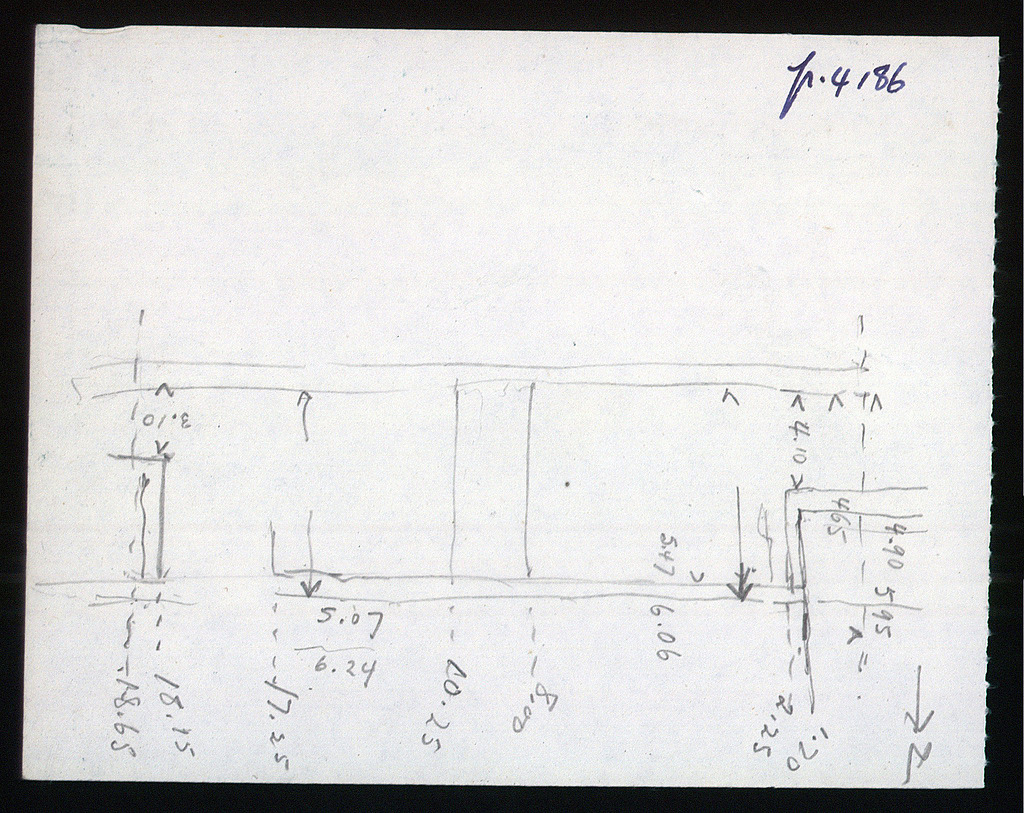 p. 4186
3.10
4.10
4.65
4.90
5.95
5.47
6.06
5.07
6.24
18.65
18.15
17.25
10.25
8.00
2.25